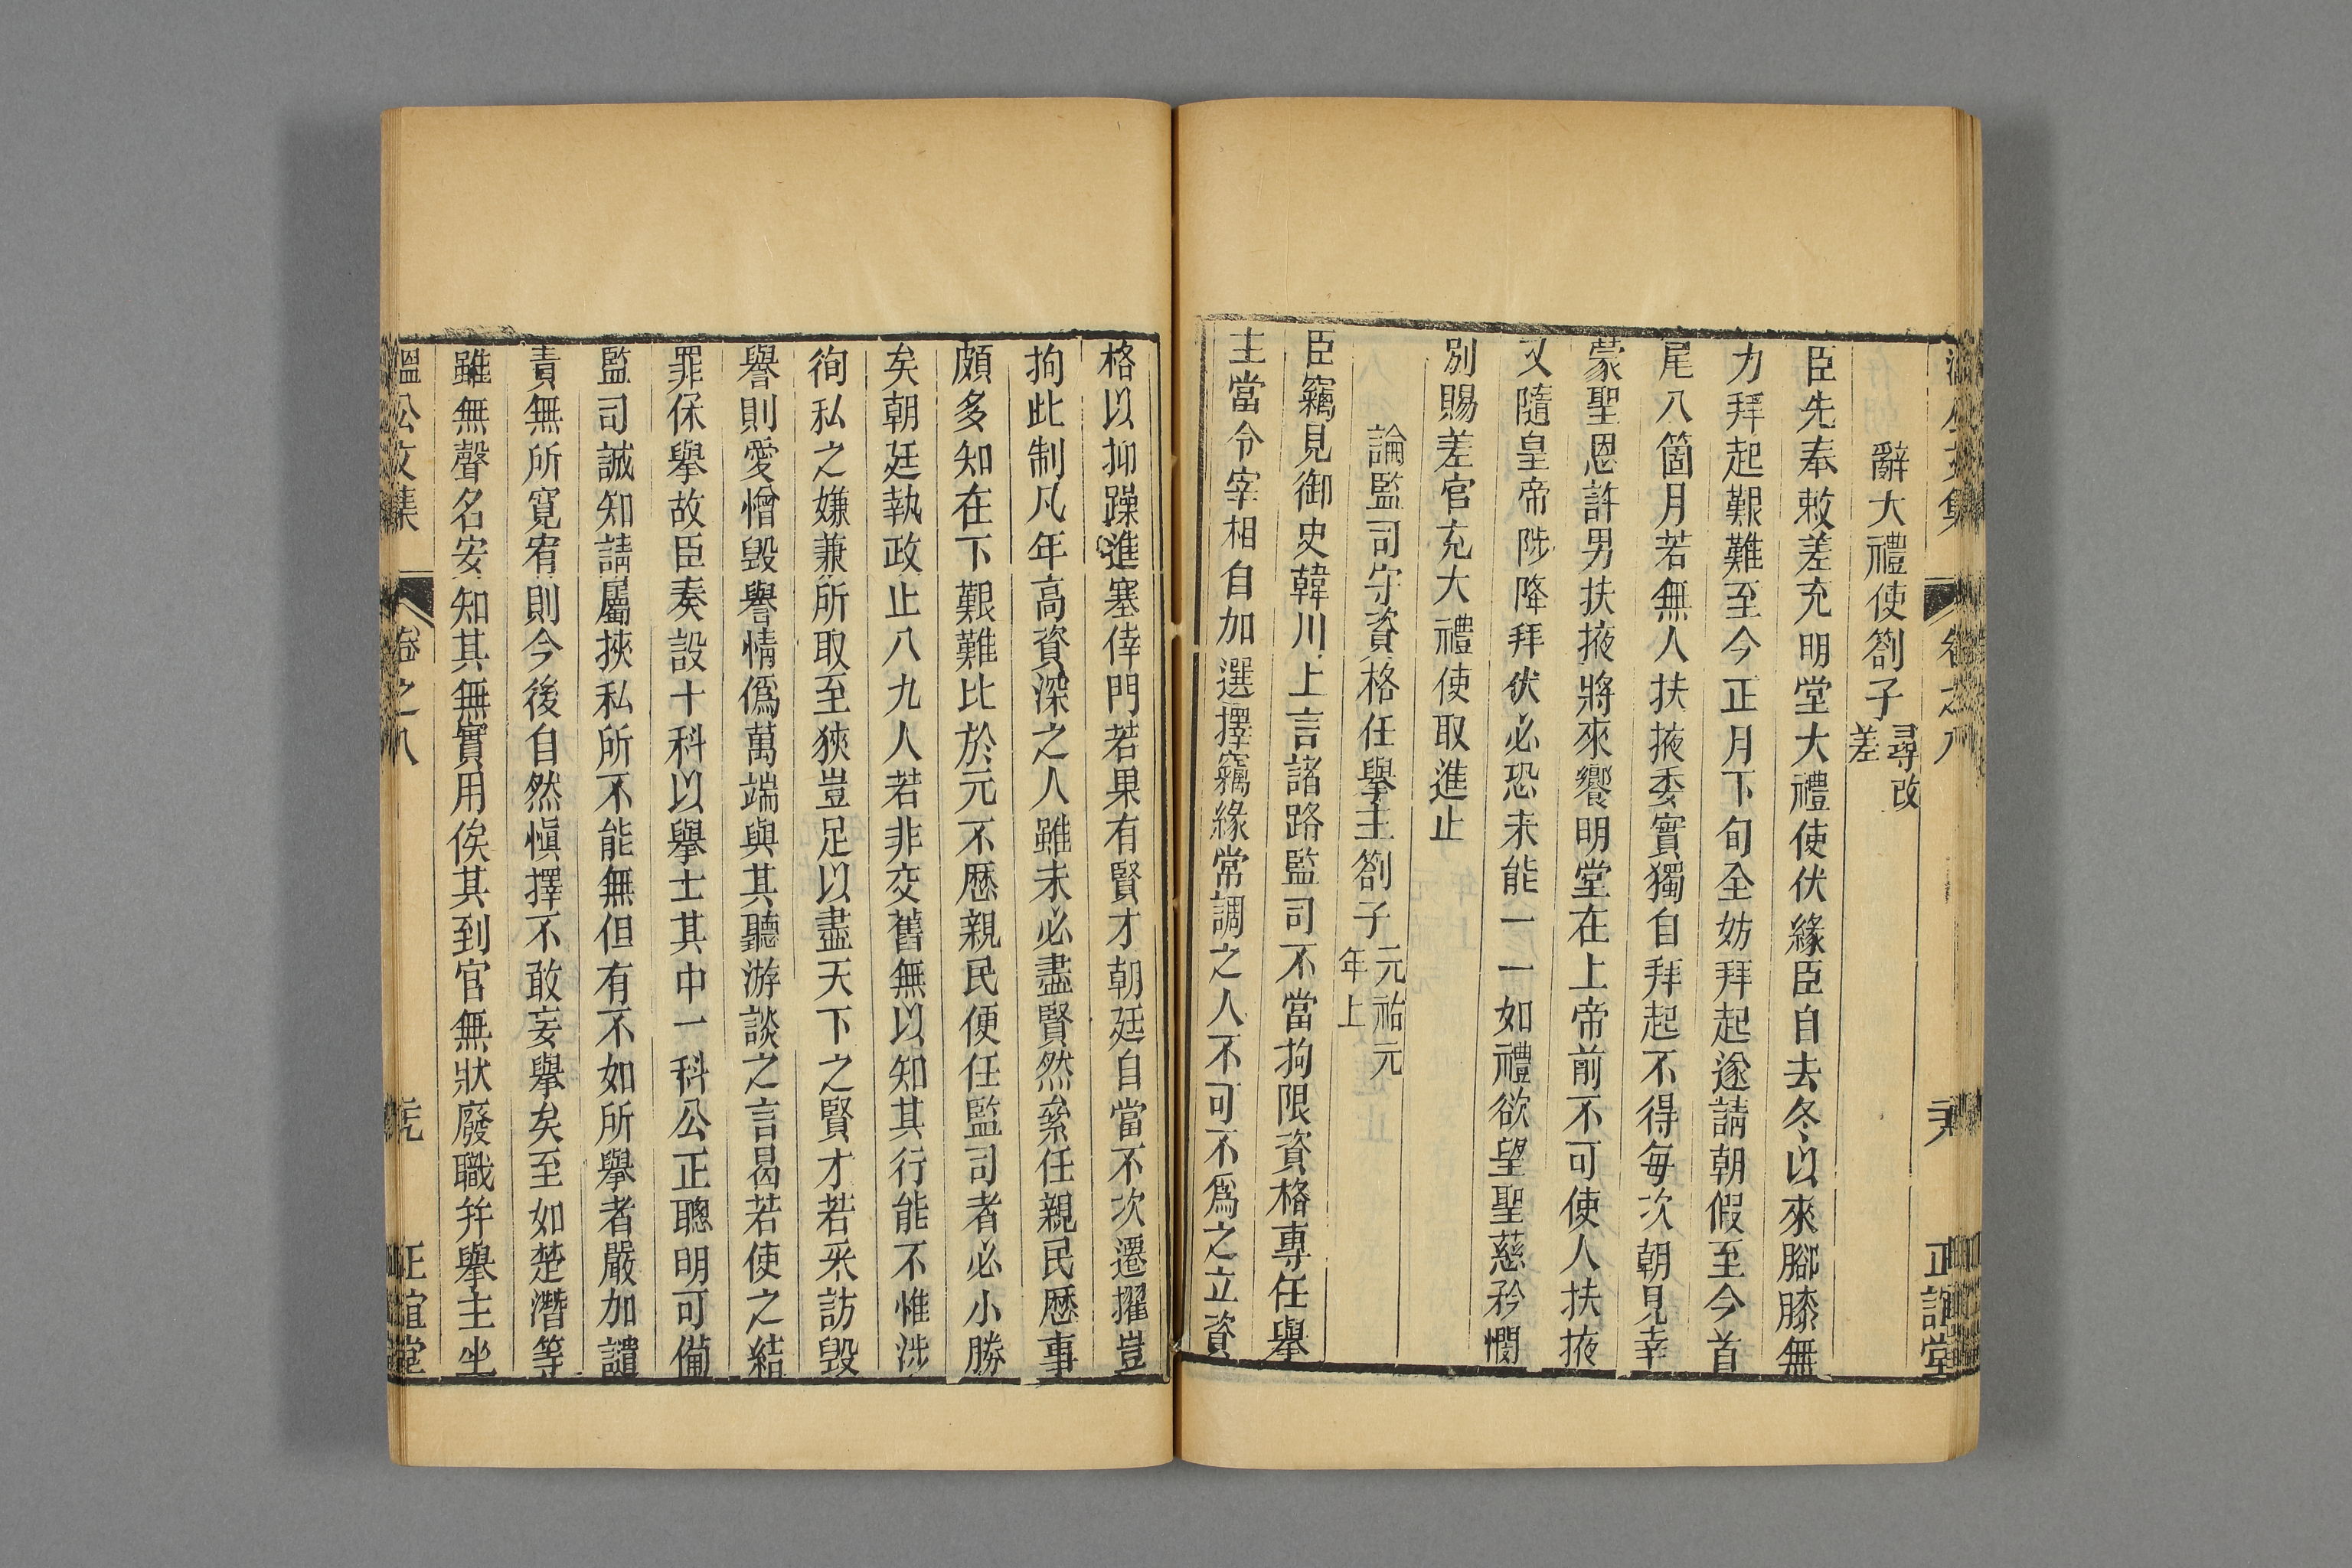 辭大禮使劄子尋改差
臣先奉敕差充明堂大禮使伏緣臣自去冬以來腳膝無
力拜起艱難至今正月下旬全妨拜起遂請朝假至今首
尾八箇月若無人扶掖委實獨自拜起不得每次朝見幸
蒙聖恩許男扶掖將來饗明堂在上帝前不可使人扶掖
又隨皇帝陟降拜伏必恐未能一一如禮欲望聖慈矜憫
別賜差官充大禮使取進止
論監司守資格任舉主劄子元祐元年上
臣竊見御史韓川上言諸路監司不當拘限資格專任舉
主當令宰相自加選擇竊緣常調之人不可不爲之立資
格以抑躁進塞倖門若果有賢才朝廷自當不次遷擢豈
拘此制凡年高資深之人雖未必盡賢然絫任親民歷事
頗多知在下艱難比於元不歷親民便任監司者必小勝
矣朝廷執政止八九人若非交舊無以知其行能不惟涉
徇私之嫌兼所取至狹豈足以盡天下之賢才若采訪毀
譽則愛憎毀譽情僞萬端與其聽游談之言曷若使之結
罪保舉故臣奏設十科以舉士其中一科公正聰明可備
監司誠知請屬挾私所不能無但有不如所舉者嚴加譴
責無所寬宥則今後自然慎擇不敢妄舉矣至如楚潛等
雖無聲名安知其無實用俟其到官無狀廢職并舉主坐
溫公文集 卷之八 正誼堂